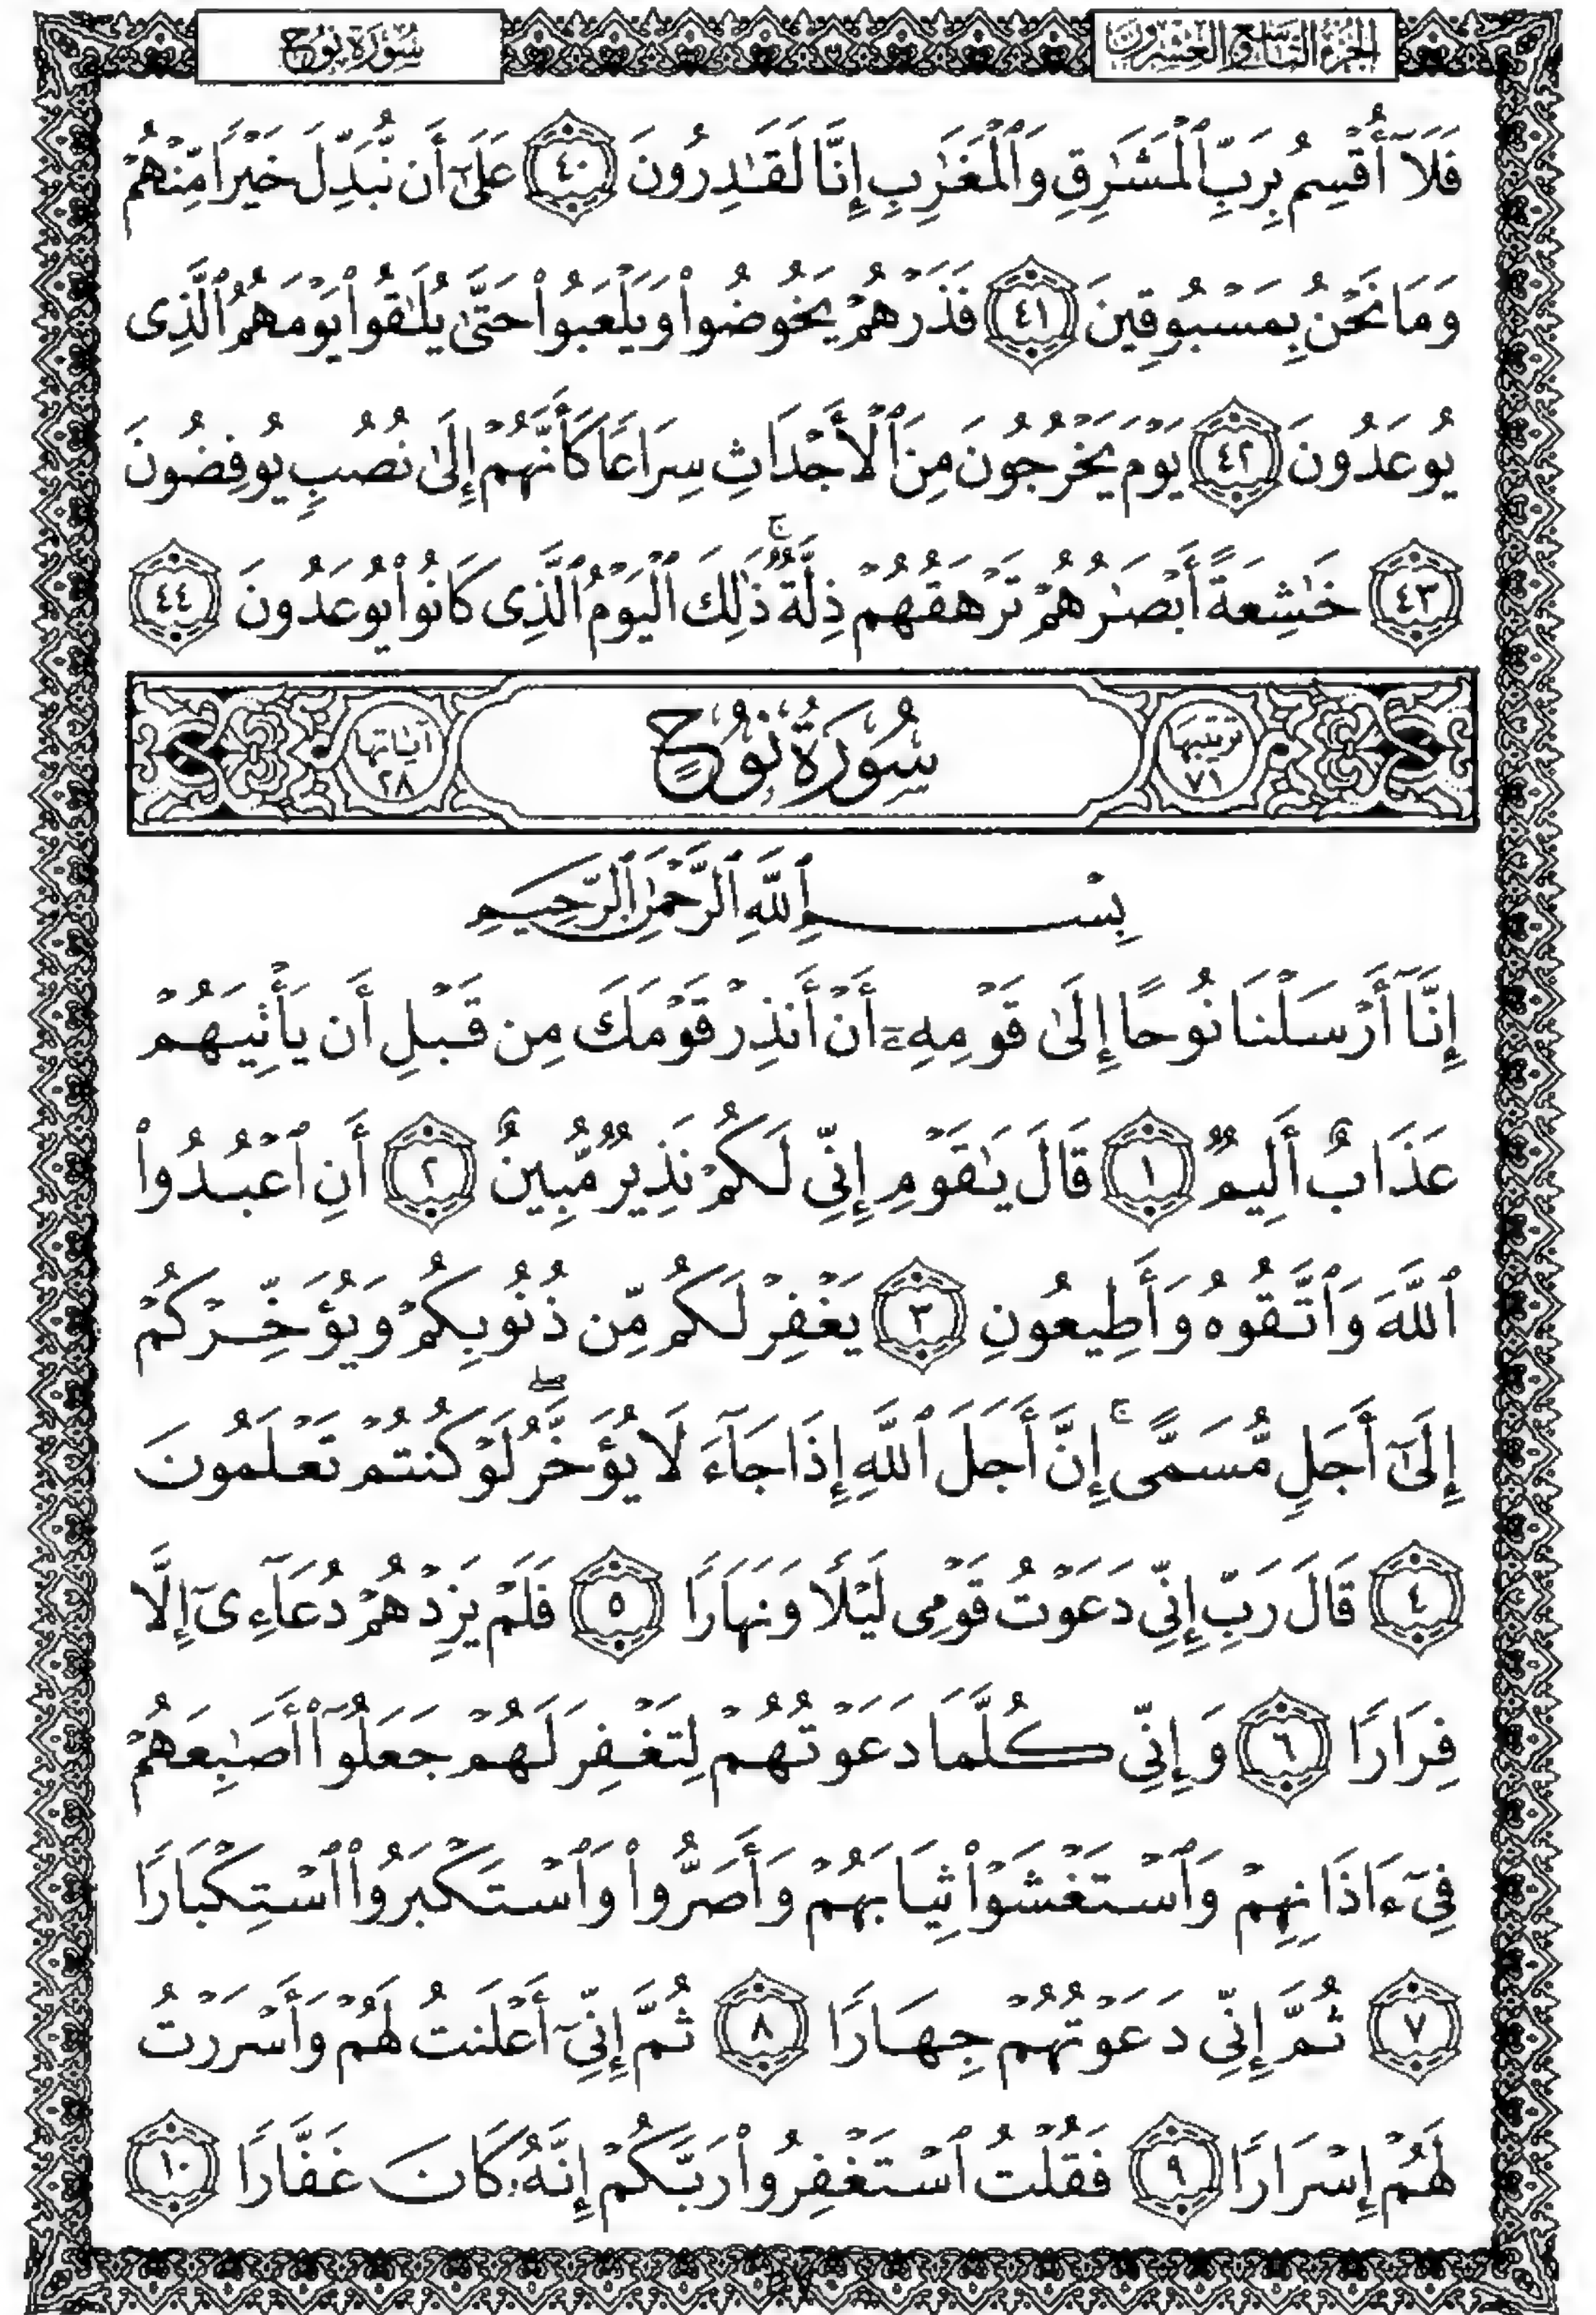 الجزء التاسع والعشرون
سورة نوح
فَلَآ أُقۡسِمُ بِرَبِّ ٱلۡمَشَٰرِقِ وَٱلۡمَغَٰرِبِ إِنَّا لَقَٰدِرُونَ ٤٠ عَلَىٰٓ أَن نُّبَدِّلَ خَيۡرٗا مِّنۡهُمۡ
وَمَا نَحۡنُ بِمَسۡبُوقِينَ ٤١ فَذَرۡهُمۡ يَخُوضُواْ وَيَلۡعَبُواْ حَتَّىٰ يُلَٰقُواْ يَوۡمَهُمُ ٱلَّذِي
يُوعَدُونَ ٤٢ يَوۡمَ يَخۡرُجُونَ مِنَ ٱلۡأَجۡدَاثِ سِرَاعٗا كَأَنَّهُمۡ إِلَىٰ نُصُبٖ يُوفِضُونَ
٤٣ خَٰشِعَةً أَبۡصَٰرُهُمۡ تَرۡهَقُهُمۡ ذِلَّةٞۚ ذَٰلِكَ ٱلۡيَوۡمُ ٱلَّذِي كَانُواْ يُوعَدُونَ ٤٤
ترتيبها ٧١ سُورَةُ نُوحٍ آياتها ٢٨
بِسۡمِ ٱللَّهِ ٱلرَّحۡمَٰنِ ٱلرَّحِيمِ
إِنَّآ أَرۡسَلۡنَا نُوحًا إِلَىٰ قَوۡمِهِۦٓ أَنۡ أَنذِرۡ قَوۡمَكَ مِن قَبۡلِ أَن يَأۡتِيَهُمۡ
عَذَابٌ أَلِيمٞ ١ قَالَ يَٰقَوۡمِ إِنِّي لَكُمۡ نَذِيرٞ مُّبِينٌ ٢ أَنِ ٱعۡبُدُواْ
ٱللَّهَ وَٱتَّقُوهُ وَأَطِيعُونِ ٣ يَغۡفِرۡ لَكُم مِّن ذُنُوبِكُمۡ وَيُؤَخِّرۡكُمۡ
إِلَىٰٓ أَجَلٖ مُّسَمًّىۚ إِنَّ أَجَلَ ٱللَّهِ إِذَا جَآءَ لَا يُؤَخَّرُۖ لَوۡ كُنتُمۡ تَعۡلَمُونَ
٤ قَالَ رَبِّ إِنِّي دَعَوۡتُ قَوۡمِي لَيۡلٗا وَنَهَارٗا ٥ فَلَمۡ يَزِدۡهُمۡ دُعَآءِيٓ إِلَّا
فِرَارٗا ٦ وَإِنِّي كُلَّمَا دَعَوۡتُهُمۡ لِتَغۡفِرَ لَهُمۡ جَعَلُوٓاْ أَصَٰبِعَهُمۡ
فِيٓ ءَاذَانِهِمۡ وَٱسۡتَغۡشَوۡاْ ثِيَابَهُمۡ وَأَصَرُّواْ وَٱسۡتَكۡبَرُواْ ٱسۡتِكۡبَارٗا
٧ ثُمَّ إِنِّي دَعَوۡتُهُمۡ جِهَارٗا ٨ ثُمَّ إِنِّيٓ أَعۡلَنتُ لَهُمۡ وَأَسۡرَرۡتُ
لَهُمۡ إِسۡرَارٗا ٩ فَقُلۡتُ ٱسۡتَغۡفِرُواْ رَبَّكُمۡ إِنَّهُۥ كَانَ غَفَّارٗا ١٠